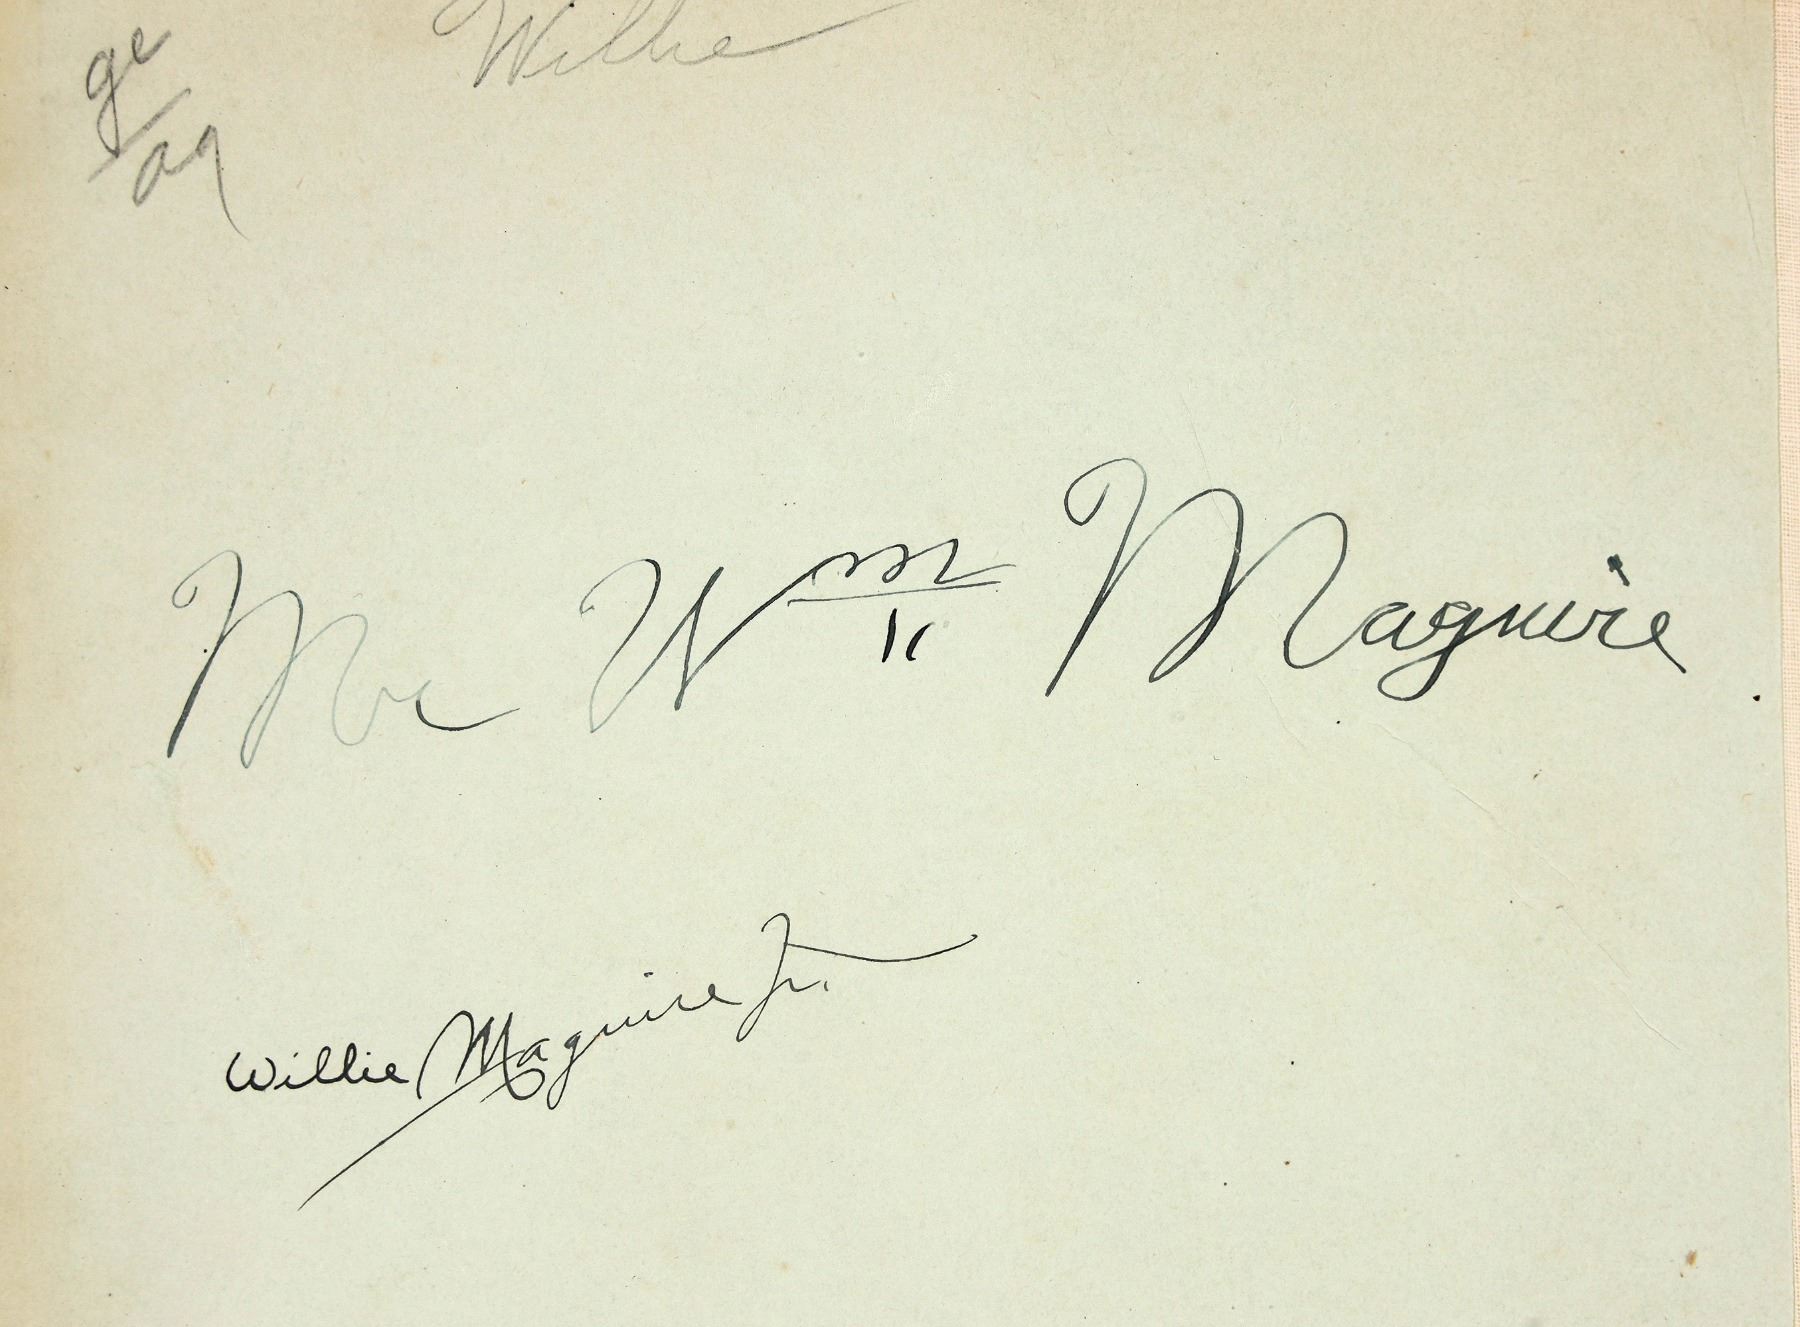 Willie
ge
Mr Wm Maguire
Willie Maguire Jr.